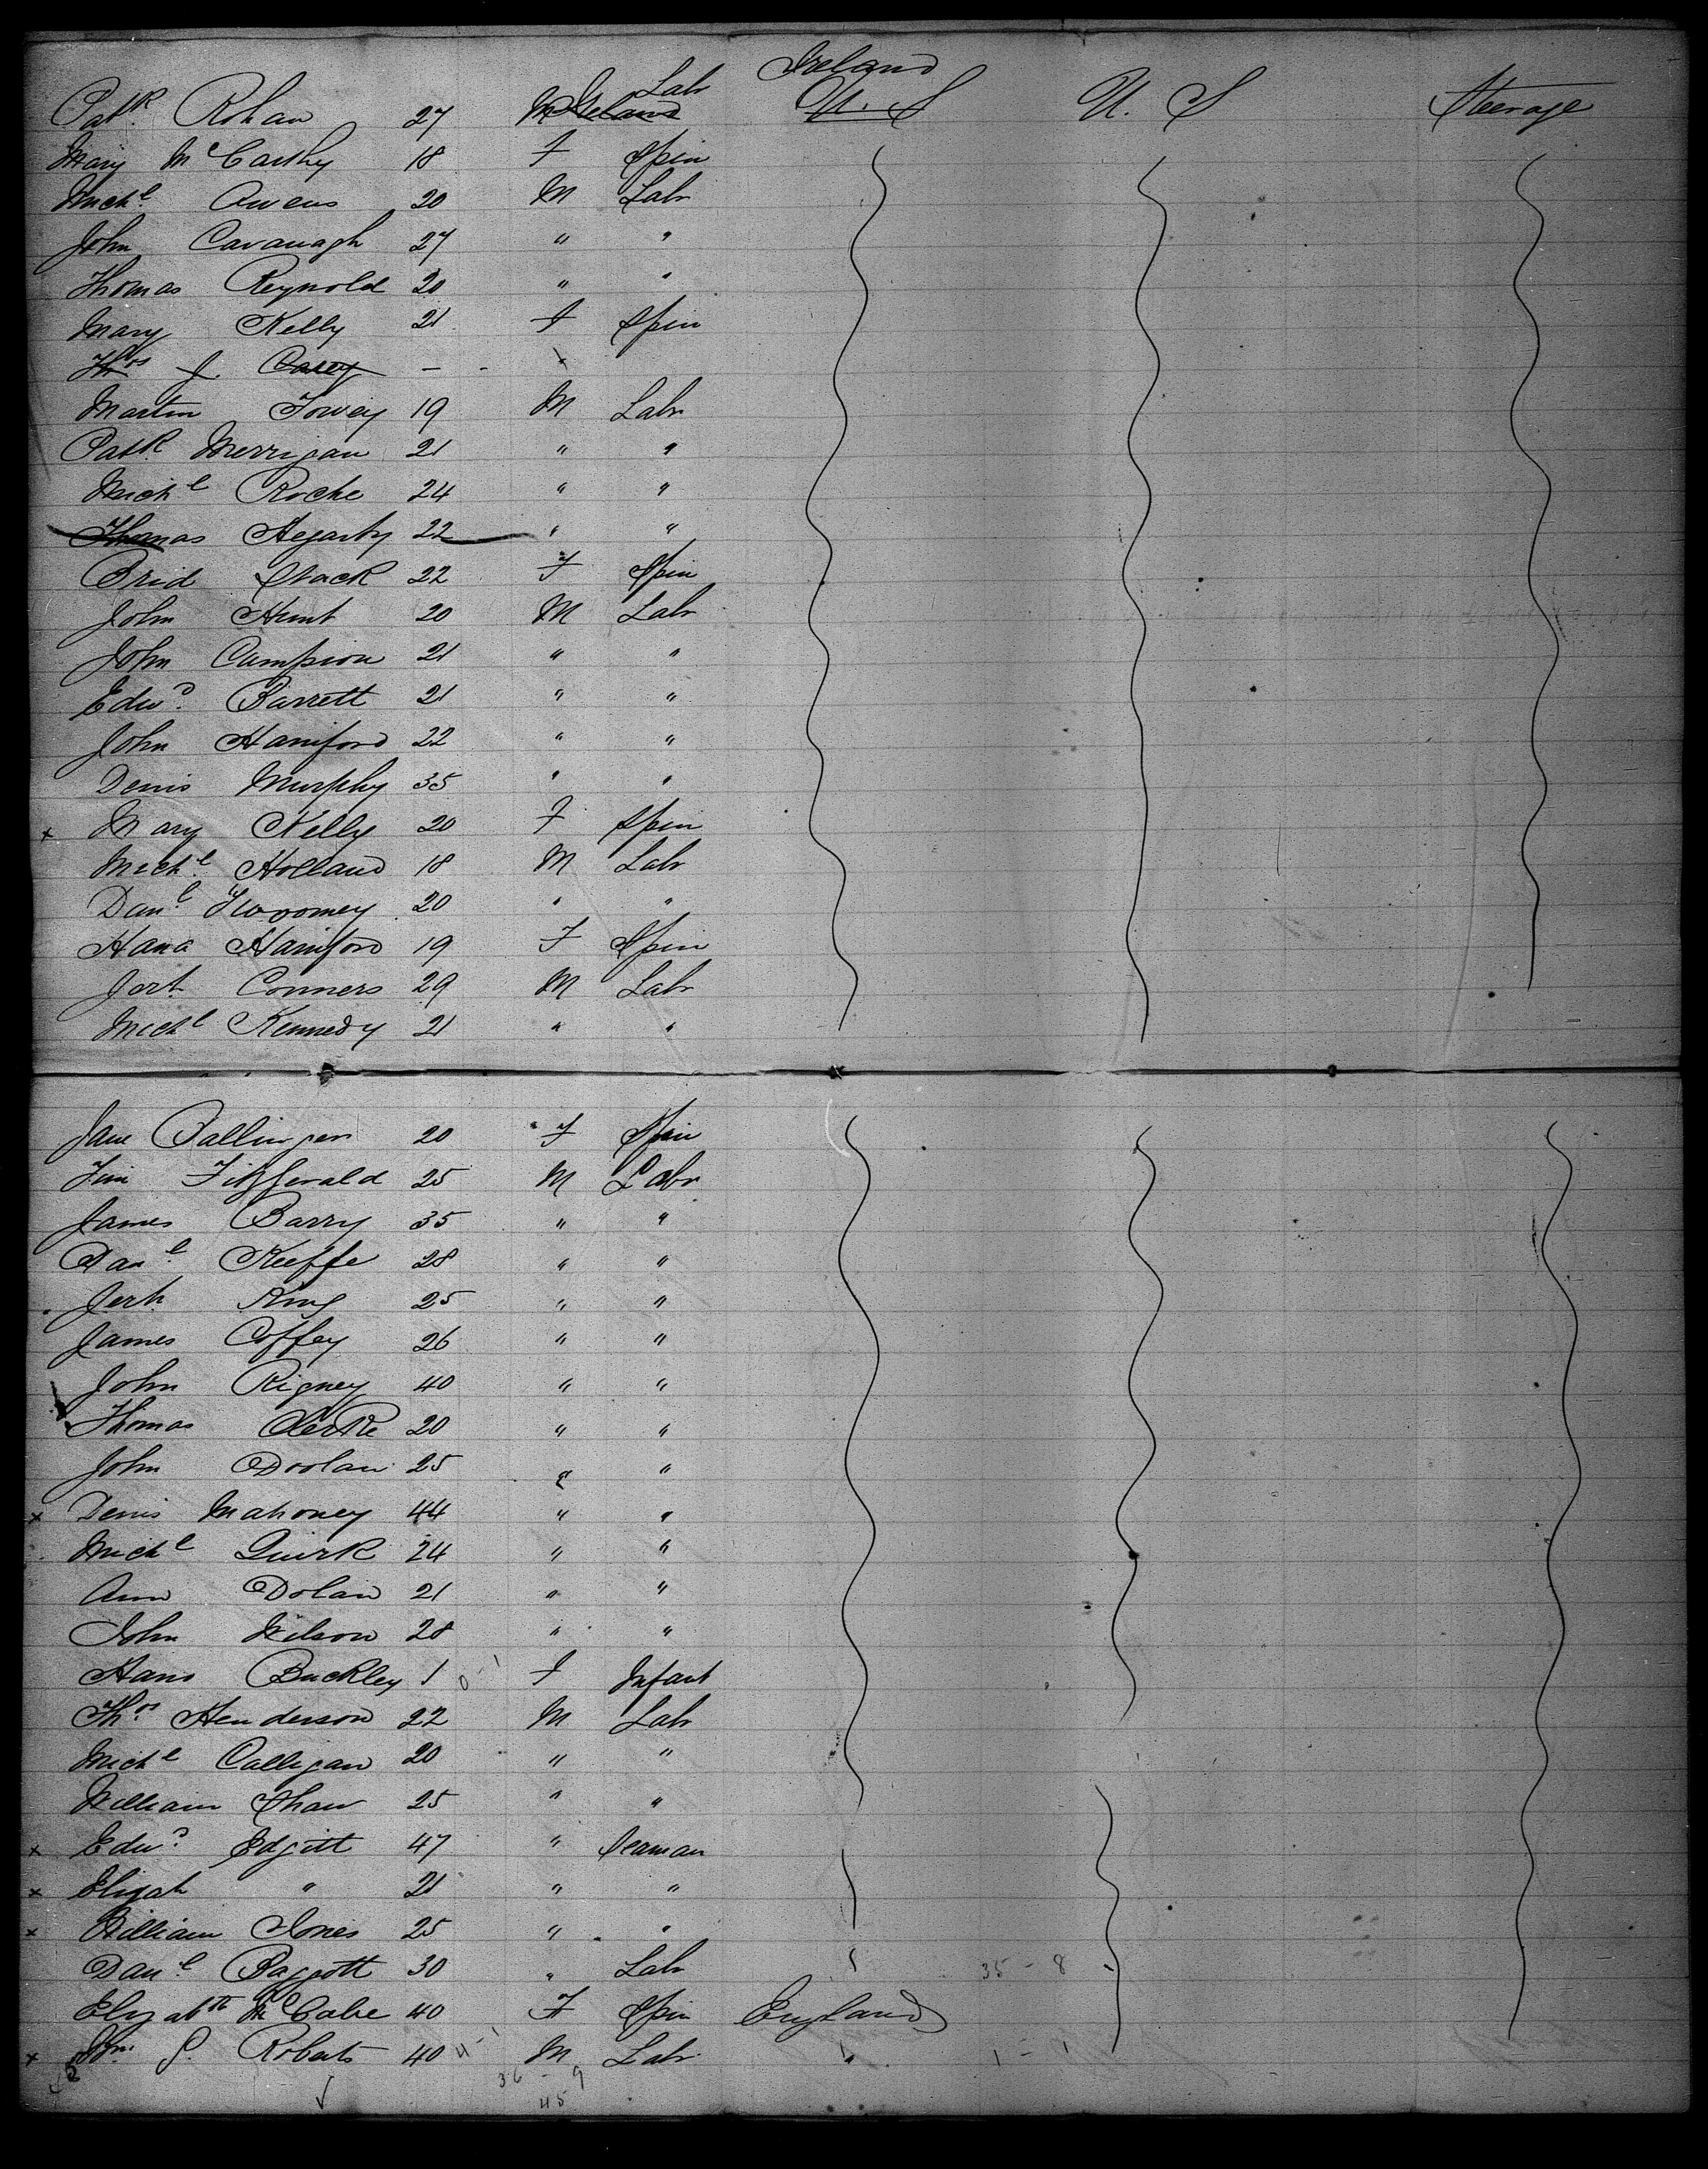 Lab Ireland
Patk Rohan 27 M Ireland U. S U. S Steerage
Mary McCarthy 18 F Spin
Michl Owens 20 M Labr
John Cavanagh 27 " "
Thomas Reynold 20 " "
Mary Kelly 21 F Spin
Thos J. Casey - -
Martin Towey 19 M Labr
Patk Merrigan 21 " "
Michl Roche 24 " "
Thomas Hegarty 22 " "
Brid Stack 22 F Spin
John Hunt 20 M Labr
John Campion 21 " "
Edwd Barrett 21 " "
John Haniford 22 " "
Denis Murphy 35 " "
x Mary Kelly 20 F Spin
Michl Holland 18 M Labr
Danl Twoomey 20 " "
Hana Haniford 19 F Spin
Jerh Conners 29 M Labr
Michl Kennedy 21 " "
Jane Ballinger 20 F Spin
Jim Fitzgerald 25 M Labr
James Barry 35 " "
Danl Keeffe 28 " "
Jerh King 25 " "
James Coffey 26 " "
John Rigney 40 " "
Thomas 20 " "
John Doolan 25 " "
x Denis Mahoney 44 " "
Michl Quirk 24 " "
Ann Dolan 21 " "
John Wilson 28 " "
Hana Buckley 1 0-1 F Infant
Thos Henderson 22 M Labr
Michl Calligan 20 " "
William Shaw 25 " "
x Edwd Edgitt 47 " Seaman
x Elijah " 21 " "
x William Jones 25 " "
Danl Baggott 30 " Labr 35-8
Elizabth McCabe 40 F Spin England
x S. Roberts 40 4-1 M Labr " 1-1
36-9
45